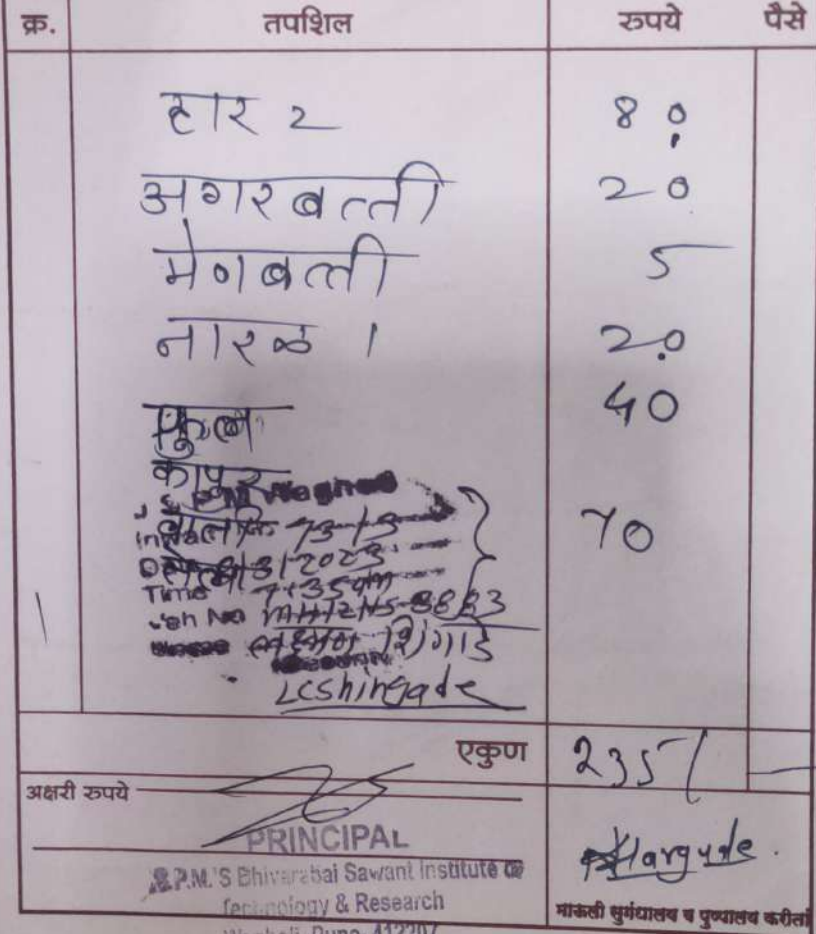 क्र. तपशिल रुपये पैसे
हार २ 80
अगरबत्ती 20
मेणबत्ती 5
नारळ 1 20
फुले 40
कापुर
73/3 70
3/2023
Time 7:35 am
Veh No MH12HS-8883
लक्ष्मण शिंगाडे
LCShingade
एकुण 235/-
अक्षरी रुपये
PRINCIPAL
J.S.P.M.'S Bhivarabai Sawant Institute Of
Technology & Research
Wagholi, Pune-412207
Hargude.
माऊली सुगंधालय व पुष्पालय करीता